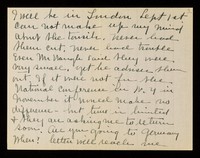 I will be in London Sept 1st
Can not make up my mind
about the tonsils. Never had
them cut, never had trouble
even Mr Vaugh said they were
very small, yet he advises them
out. If it were not for the
National Conference in N.Y. in
November it would make no
difference - but time is limited
& they are asking me to return
soon. Are you going to Germany
When? letters will reach me